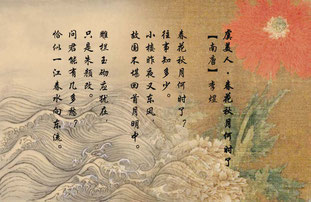 虞美人·春花秋月何时了
【南唐】李煜
春花秋月何时了?
往事知多少。
小楼昨夜又东风,
故国不堪回首月明中。
雕栏玉砌应犹在,
只是朱颜改。
问君能有几多愁?
恰似一江春水向东流。